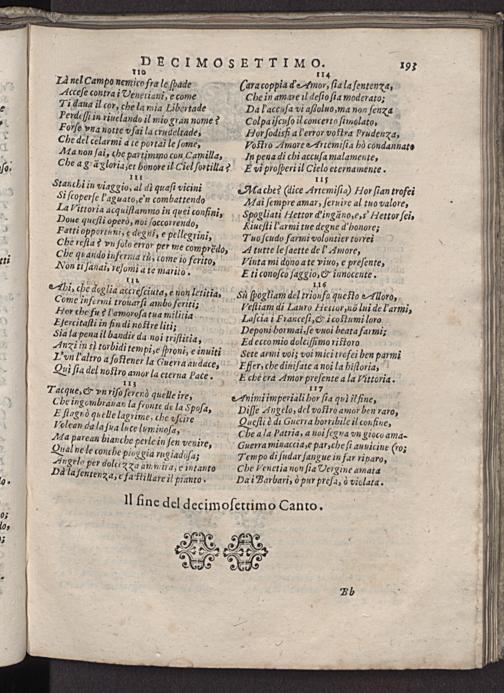 DECIMOSETTIMO. 193
110
Là nel Campo nemico fra le spade
Accese contra i Venetiani, e come
Ti daua il cor, che la mia Libertade
Perdessi in riuelando il mio gran nome?
Forse vna notte vsai la crudeltade,
Che del celarmi a te portai le some,
Ma non sai, che partimmo con Camilla,
Che a gra gloria, et honore il Ciel sortilla?
111
Stanchi in viaggio, al dì quasi vicini
Si scoperse l'aguato, e'n combattendo
La Vittoria acquistammo in quei confini,
Doue questi operò, noi soccorrendo,
Fatti opportuni, e degni, e pellegrini,
Che resta? vn solo error per me comprēdo,
Che quando inferma tù, come io ferito,
Non ti sanai, resomi a te marito.
112
Ahi, che doglia accresciuta, e non letitia,
Come infermi trouarsi ambo feriti;
Hor che fu? l'amorosa tua militia
Esercitasti in fin di nostre liti;
Sia la pena il bandir da noi tristitia,
Anzi in sì torbidi tempi, e sproni, e inuiti
L'vn l'altro a sostener la Guerra audace,
Qui sia del nostro amor la eterna Pace.
113
Tacque, & vn riso serenò quelle ire,
Che ingombrauan la fronte de la Sposa,
E stagnò quelle lagrime, che vscire
Volean da la sua luce luminosa,
Ma parean bianche perle in sen venire,
Qual ne le conche pioggia rugiadosa;
Angelo per dolcezza ammira, e intanto
Dà la sentenza, e fà stillare il pianto.
114
Cara coppia d'Amor, sia la sentenza,
Che in amare il desio sia moderato;
Da l'accusa vi assoluo, ma non senza
Colpa iscuso il concerto simolato,
Hor sodisfi a l'error vostra Prudenza,
Vostro Amore Artemisia hò condannato
In pena di chi accusa malamente,
E vi prosperi il Cielo eternamente.
115
Ma che? (dice Artemisia) Hor sian trofei
Mai sempre amar, seruire al tuo valore,
Spogliati Hettor d'ingāno, e, s'Hettor sei,
Riuesti l'armi tue degne d'honore;
Tuo scudo farmi volontier torrei
A tutte le saette de l'Amore,
Vinta mi dono a te viuo, e presente,
E ti conosco saggio, & innocente.
116
Sù spogliam del trionfo questo Alloro,
Vestiam di Lauro Hettor, nò lui de l'armi,
Lascia i Francesi, & i costumi loro
Deponi hormai, se vuoi beata farmi;
Ed ecco mio dolcissimo ristoro
Sete armi voi; voi mici trofei ben parmi
Esser, che diuisate a noi la historia,
E che era Amor presente a la Vittoria.
117
Animi imperiali hor sia quì il fine,
Disse Angelo, del vostro amor ben raro,
Questi ò di Guerra horribile il confine,
Che a la Patria, a noi segna vn gioco ama-
Guerra minaccia, e par, che si auuicine (ro;
Tempo di sudar sangue in far riparo,
Che Venetia non sia Vergine amata
Da i Barbari, ò pur presa, ò violata.
Il fine del decimosettimo Canto.
Bb